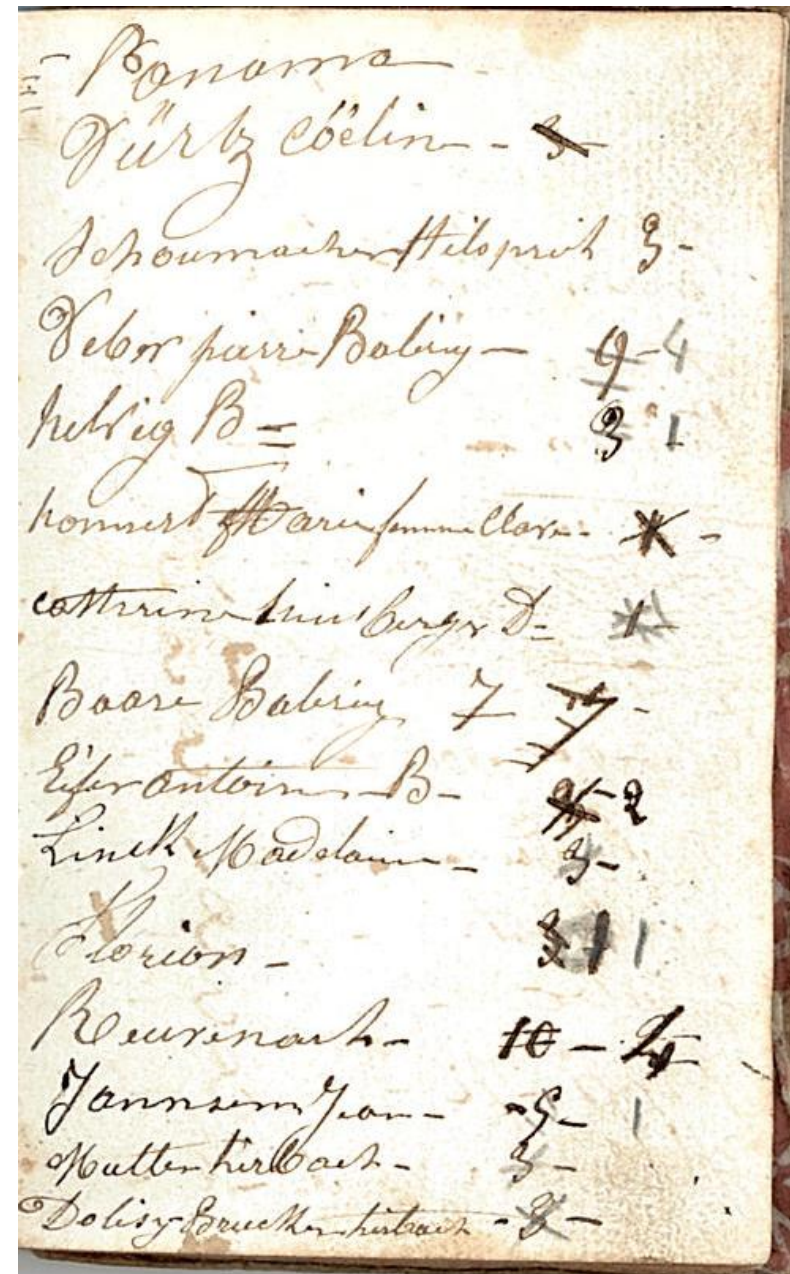 Panama
Dürtz Cöelin - 3 -
Schoumacher Hilsprich 3 -
Veber pierre Balering - 9 - 4
helvig B = 3 1
Marie femme Clar -
catherine berger D -
Baare Balering 7
Eifer antoine - B - 2
Linck Madelaine - 3 -
Florion - 3 1 1
Reuvenach - 10 -
Jannsem Jean - 5 - 1
Mutter hirbach - 3 -
Dolisy Brucker hirbach - 3 -